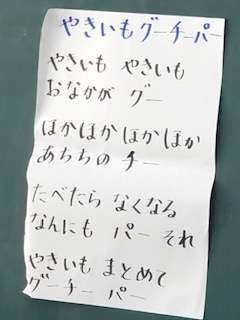 やきいもグーチーパー
やきいも やきいも
おなかが グー
ほかほか ほかほか
あちちの チー
たべたら なくなる
なんにも パー それ
やきいも まとめて
グーチー パー